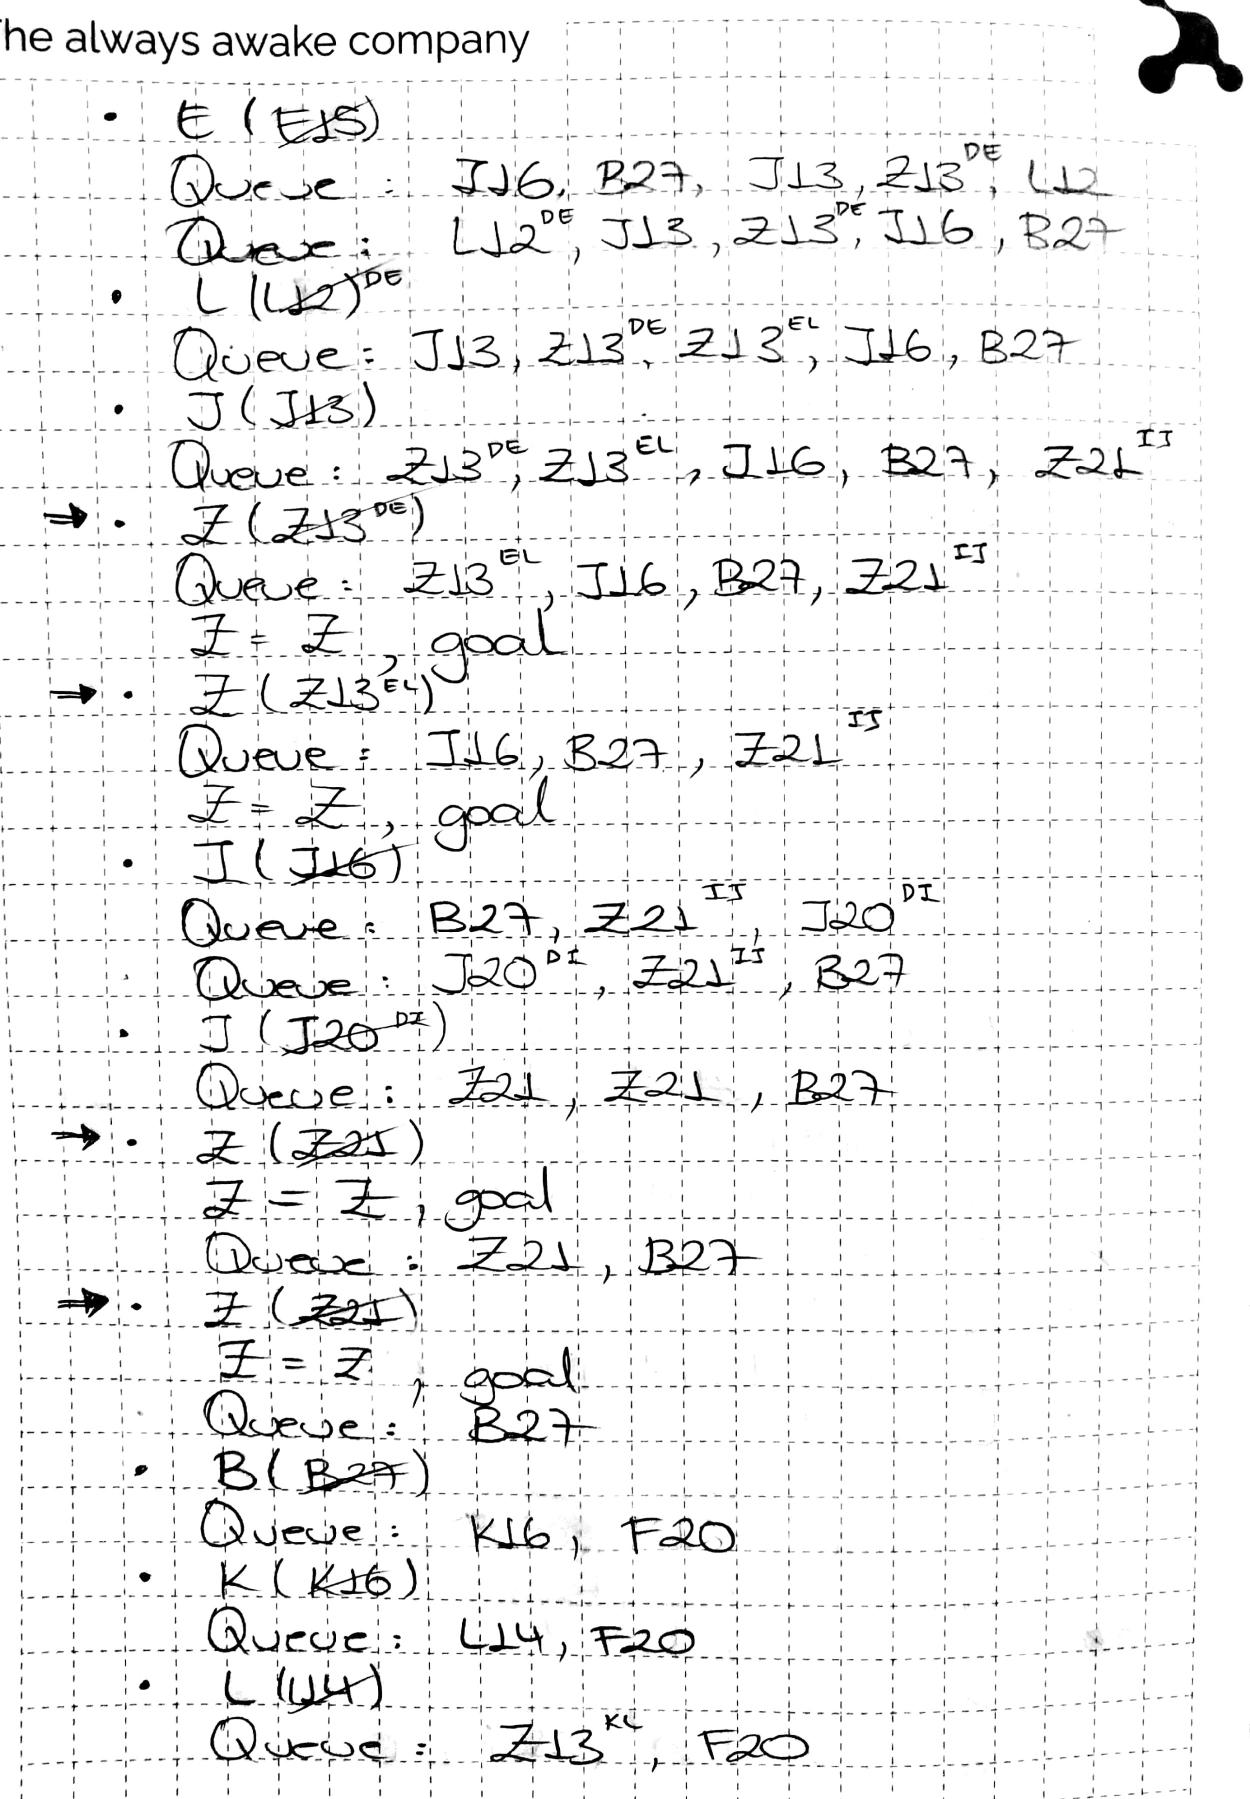 The always awake company
• E (E15)
Queue : I16, B27, J13, Z13^DE, L12
Queue : L12^DE, J13, Z13^DE, I16, B27
• L (L12)^DE
Queue : J13, Z13^DE, Z13^EL, I16, B27
• J (J13)
Queue : Z13^DE, Z13^EL, I16, B27, Z21^IJ
→ • Z (Z13^DE)
Queue : Z13^EL, I16, B27, Z21^IJ
Z = Z, goal
→ • Z (Z13^EL)
Queue : I16, B27, Z21^IJ
Z = Z, goal
• I (I16)
Queue : B27, Z21^IJ, J20^DI
Queue : J20^DI, Z21^IJ, B27
• J (J20^DI)
Queue : Z21, Z21, B27
→ • Z (Z21)
Z = Z, goal
Queue : Z21, B27
→ • Z (Z21)
Z = Z, goal
Queue : B27
• B (B27)
Queue : K16, F20
• K (K16)
Queue : L14, F20
• L (L14)
Queue : Z13^KL, F20